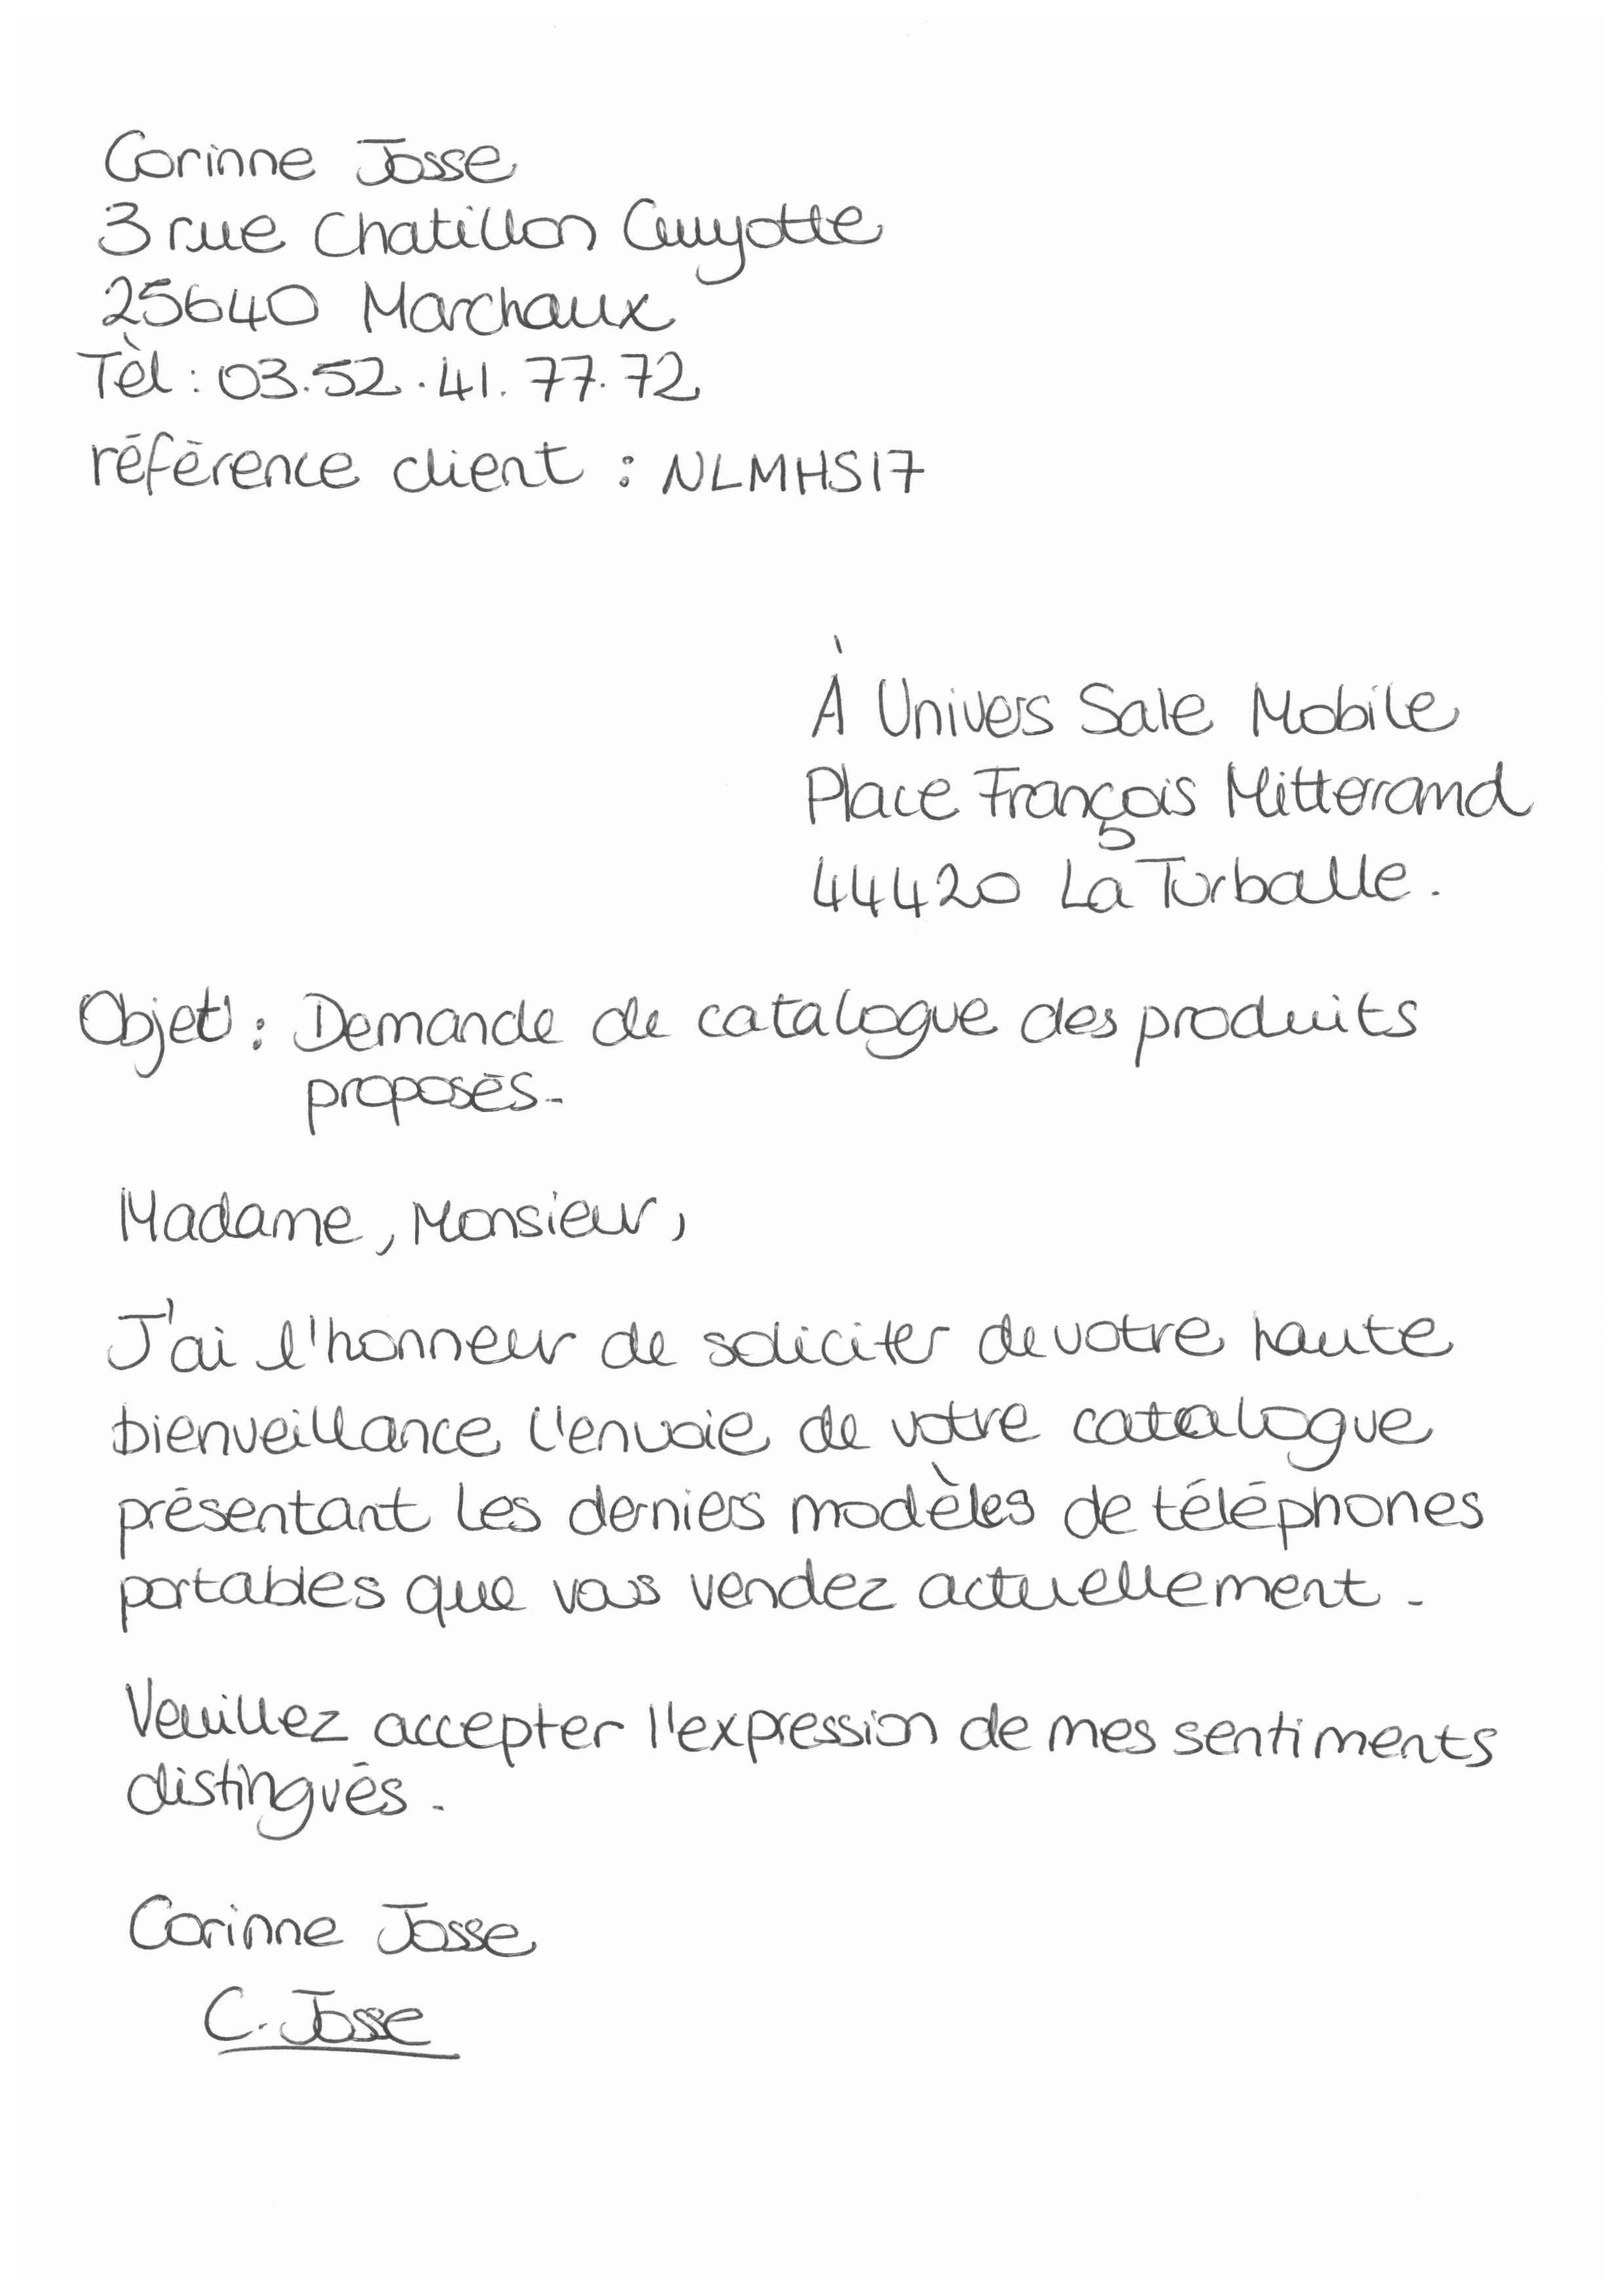 Corinne Josse
3 rue Chatillon Guyotte
25640 Marchaux
Tèl : 03.52.41.77.72
référence client : NLMHS17
À Univers Sale Mobile
Place François Mitterrand
44420 La Turballe.
Objet : Demande de catalogue des produits
proposés.
Madame, Monsieur,
J'ai l'honneur de soliciter de votre haute
bienveillance l'envoie de votre catalogue
présentant les derniers modèles de téléphones
portables que vous vendez actuellement.
Veuillez accepter l'expression de mes sentiments
distingués.
Corinne Josse
C. Josse